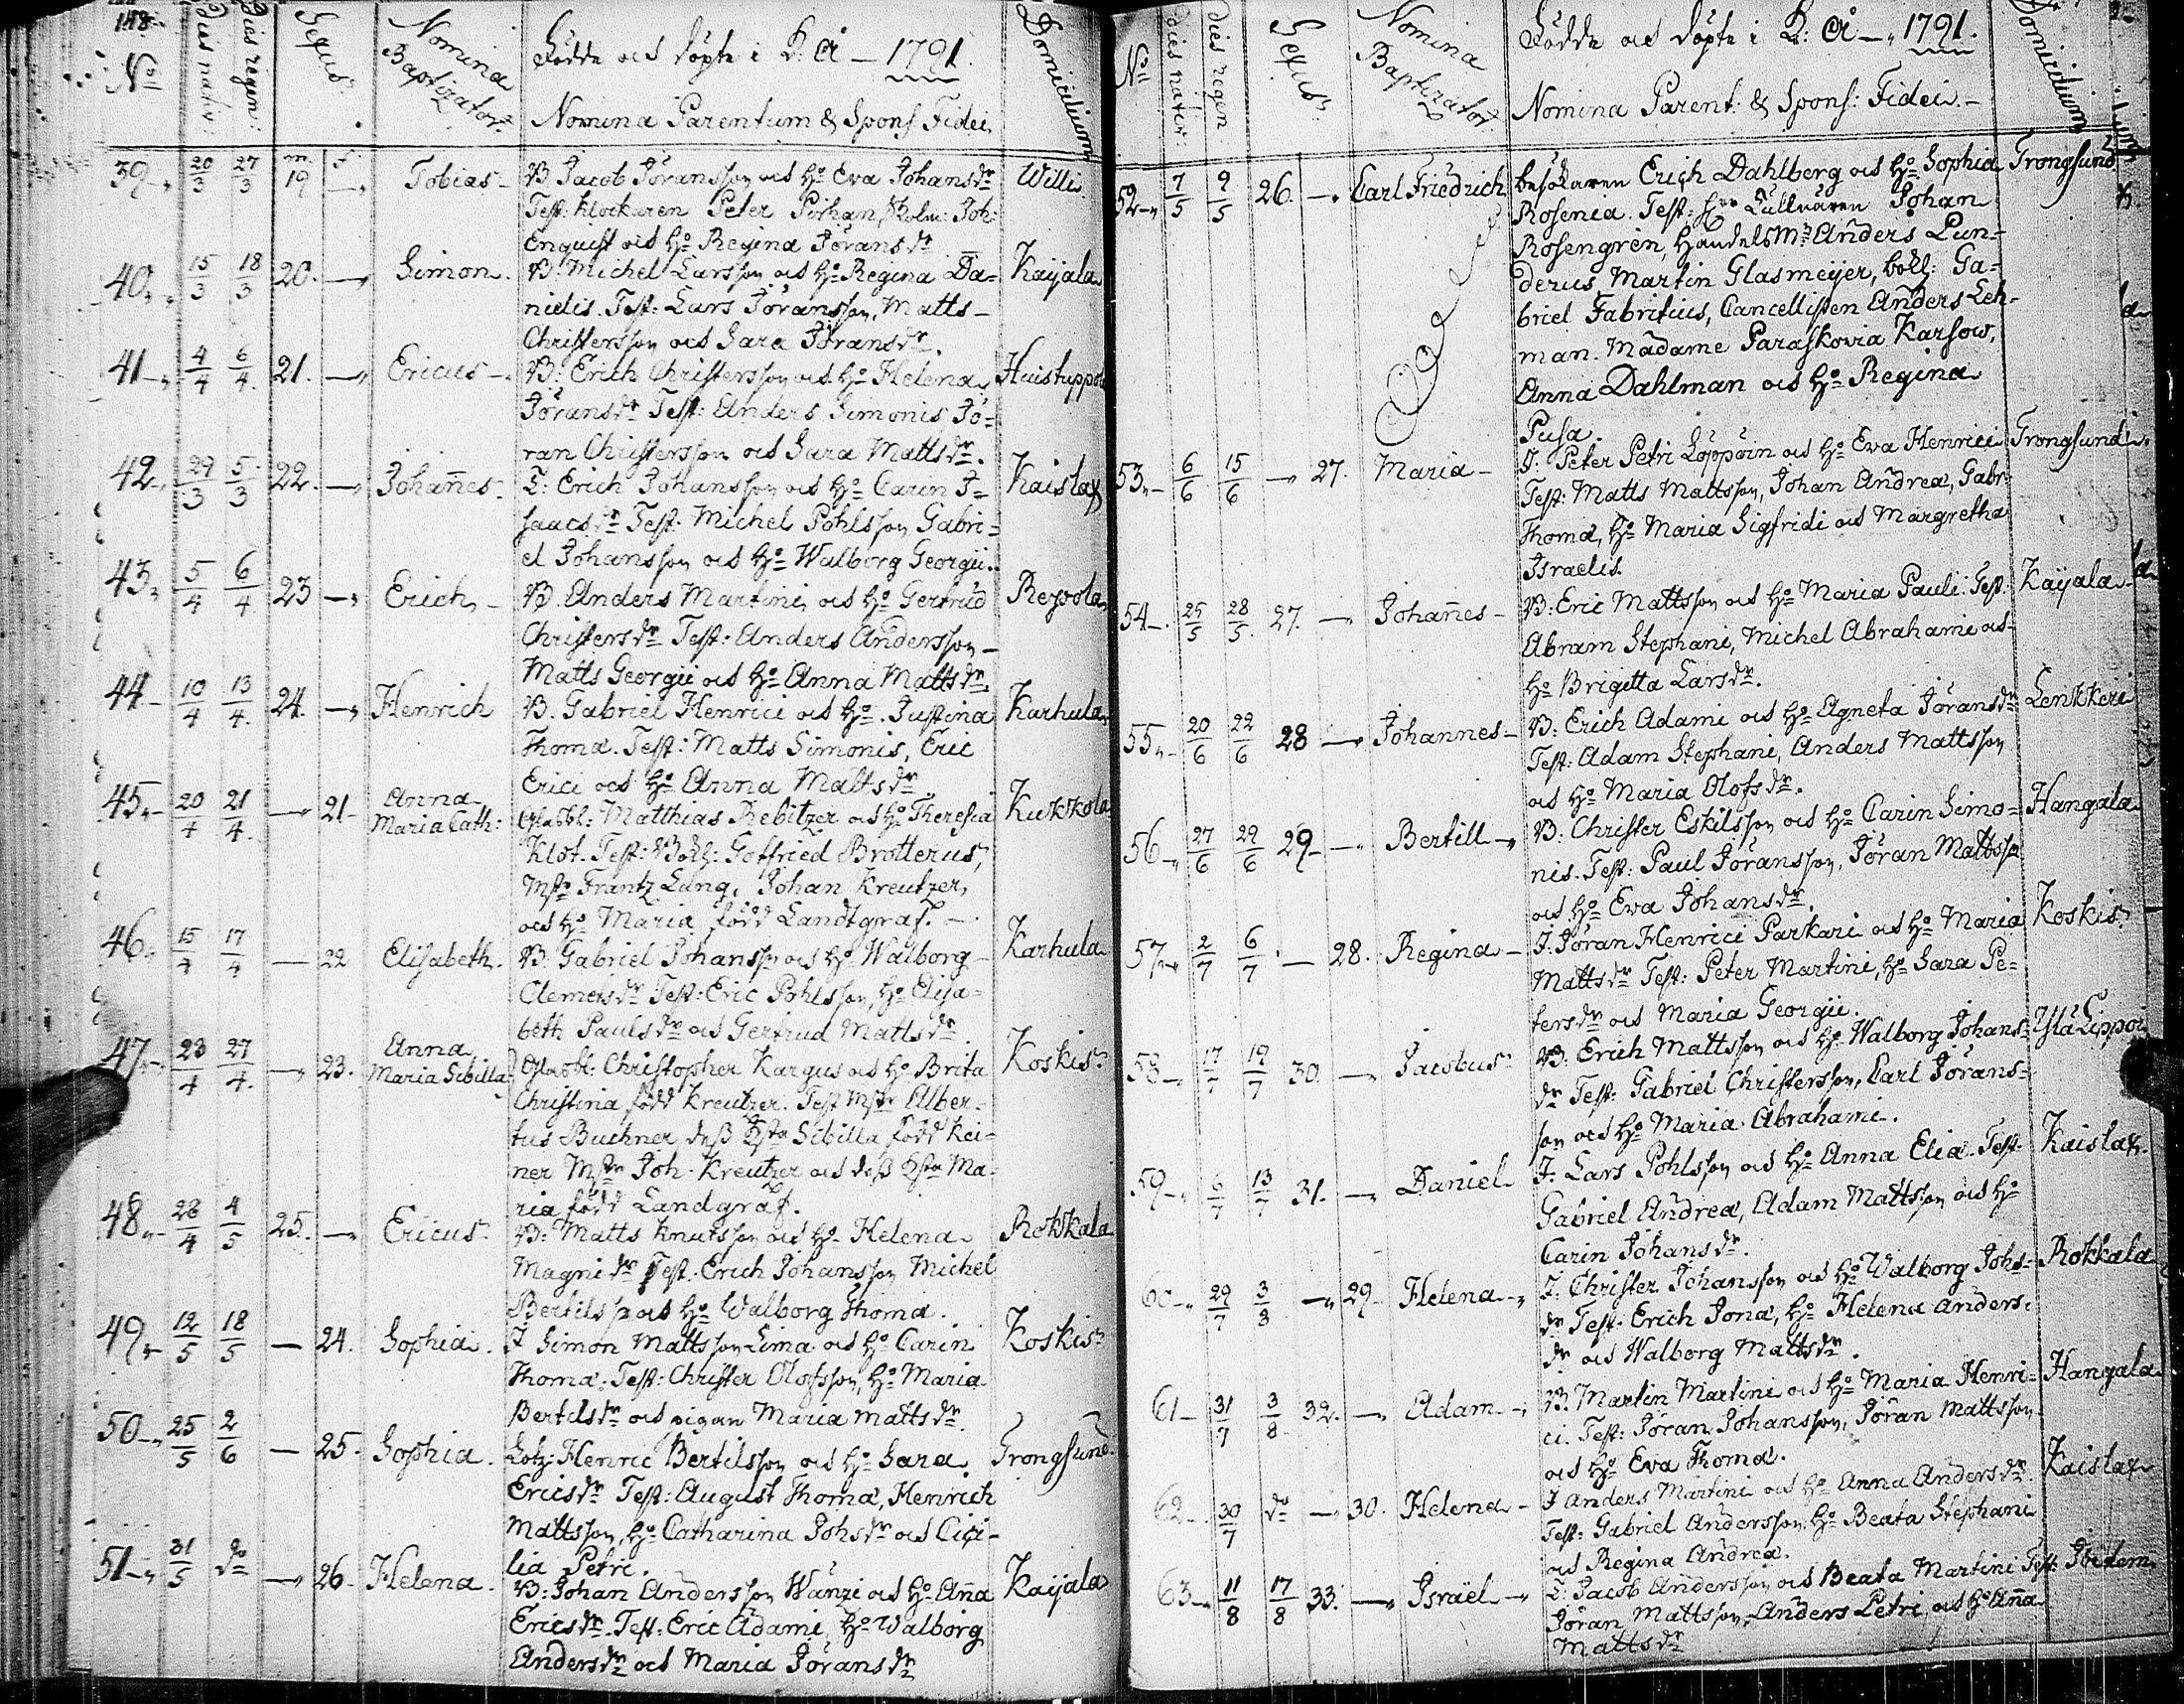 148.
No dies nativ: dies regen: Sexus Nomina Baptizator: Födde och döpte i K: Å - 1791. Domicilium
Nomina Parentum & Spons. Fidei
m. f.
39 20/3 27/3 19 Tobias B Jacob Jöransson och Ho Eva Johansdr Willi
Test: Klockaren Peter Porhan, Skolm: Joh:
Enquist och Ho Regina Jöransdr
40 15/3 18/3 20. Simon. B: Michel Larsson och Ho Regina Da= Kaijala
nielis. Test: Lars Jöransson, Matts
Christersson och Sara Jöransdr.
41 4/4 6/4. 21. Ericus B: Erich Christersson och Ho Helena Huistuppola
Jöransdr Test: Anders Simonis Jö=
ran Christersson och Sara Mattsdr.
42 29/3 5/3 22. Johan̄es. T: Erich Johansson och Ho Carin I= Kaislax
saacsdr Test: Michel Pohlsson Gabri=
el Johansson och Ho Walborg Georgii.
43 5/4 6/4. 23 Erich B. Anders Martini och Ho Gertrud Repola
Christersdr Test: Anders Andersson
Matts Georgii och Ho Anna Mattsdr.
44 10/4 13/4. 24. Henrich B. Gabriel Henrici och Ho Justina Karhula
Thomæ. Test: Matts Simonis, Eric
Erici och Ho Anna Mattsdr.
45 20/4 21/4. 21 Anna Maria Cath: Glasbl: Matthias Rebitzer och Ho Theresia Kukkola
Klot. Test: Bokh: Gotfried Brotterus,
Mstr Frantz Lung, Johan Kreutzer,
och Ho Maria född Landtgraf.
46. 15/4 17/4 22 Elisabeth. B. Gabriel Johansson och Ho Walborg Karhula
Clemetsdr Test: Eric Pohlsson, Ho Elisa=
beth Paulsdr och Gertrud Mattsdr.
47 23/4 27/4. 23. Anna Maria Sibilla Glasbl: Christopher Kargus och Ho Brita Koskis
Christina född Kreutzer. Test Mstr Alber=
tus Buchner, dess Hstr Sibilla född Kei=
ner Mstr Joh. Kreutzer och dess Hstr Ma=
ria född Landgraf.
48 26/4 4/5 25. Ericus B: Matts Knutsson och Ho Helena Rokkala
Magnidr Test. Erich Johansson Michel
Bertils s: och Ho Walborg Thomæ.
49 12/5 18/5 24. Sophia. I Simon Mattsson Sima och Ho Carin Koskis
Thomæ. Test: Christer Olofsson, Ho Maria
Bertilsdr och pigan Maria Mattsdr
50 25/5 2/6 25. Sophia. Lotz: Henric Bertilsson och Ho Sara Trongsund.
Ericsdr Test: August Thomæ, Henrich
Mattsson, Ho Catharina Johsdr och Cici=
lia Petri.
51 31/5 do 26. Helena. B: Johan Andersson Wänzi och Ho An̄a Kaijala
Ericsdr. Test: Eric Adami, Ho Walborg
Andersdr och Maria Jöransdr
No dies nativ: dies regen Sexus Nomina Baptizator: Födde och döpte i K: Å - 1791. Domicilium
Nomina Parent: & Spons: Fidei.
52 7/5 9/5 26. Carl Friedrich besökaren Erich Dahlberg och Ho Sophia Trongsund
Rosenia. Test: Herr Tullnären Johan
Rosengren, Handelsm: Anders Lun=
derus, Martin Glasmeijer, bokh: Ga=
briel Fabritius, Cancellisten Anders Leh=
man. Madame Paraskovia Karsow,
Anna Dahlman och Ho Regina
Pusa.
53 6/6 15/6 27. Maria I: Peter Petri Löppöin och Ho Eva Henrici Trongsund.
Test: Matts Mattsson, Johan Andreæ, Gabr:
Thomæ, Ho Maria Sigfridi och Margretha
Israelis.
54 25/5 28/5. 27. Johan̄es B: Eric Mattsson och Ho Maria Pauli. Test: Kaijala
Abram Stephani, Michel Abrahami och
Ho Brigitta Larsdr.
55 20/6 22/6 28 Johannes B: Erich Adami och Ho Agneta Jöransdr Lenkkeri
Test: Adam Stephani, Anders Mattsson
och Ho Maria Olofsdr.
56 27/6 29/6 29 Bertill B: Christer Eskilsson och Ho Carin Simo= Hangala
nis. Test: Paul Jöransson, Jöran Mattsson
och Ho Eva Johansdr.
57 2/7 6/7 28. Regina I. Jöran Henrici Parkari och Ho Maria Koskis
Mattsdr Test: Peter Martini, Ho Sara Pe=
tersdr och Maria Georgii.
58 17/7 19/7 30. Jacobus B: Erich Mattsson och Ho Walborg Johans= Ylä Lippola
dr Test: Gabriel Christersson, Carl Jörans=
son och Ho Maria Abrahami.
59 6/7 13/7 31. Daniel I: Lars Pohlsson och Ho Anna Eliæ. Test: Kaislax
Gabriel Andreæ, Adam Mattsson och Ho
Carin Johansdr.
60 29/7 3/8 29 Helena I: Christer Johansson och Ho Walborg Johs= Rokkala
dr Test: Erich Jonæ, Ho Helena Anders=
dr och Walborg Mattsdr.
61 31/7 3/8 32. Adam B. Martin Martini och Ho Maria Henri= Hangala
ci. Test: Jöran Johansson, Jöran Mattsson
och Ho Eva Thomæ.
62 30/7 do 30. Helena I Anders Martini och Ho Anna Andersdr. Kaislax
Test: Gabriel Andersson, Ho Beata Stephani
och Regina Andreæ.
63 11/8 17/8 33. Israel T: Jacob Andersson och Beata Martini Test: Ibidem
Jöran Mattsson, Anders Petri och Ho An̄a
Mattsdr